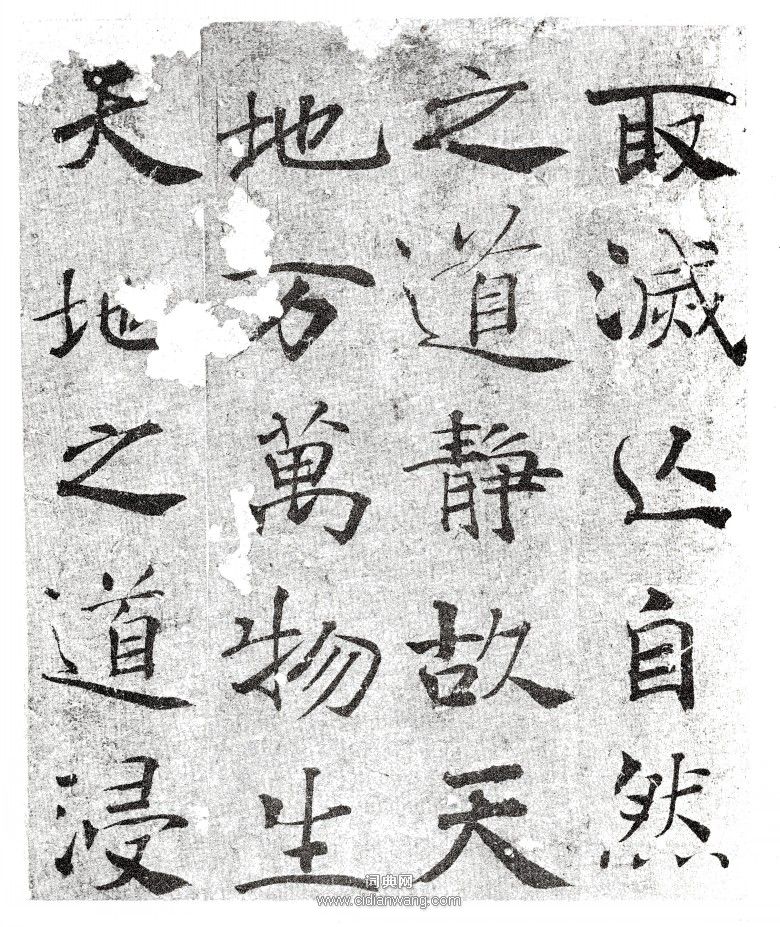 取滅亾自然
之道靜故天
地万萬物生
天地之道浸
词典网
www.cidianwang.com